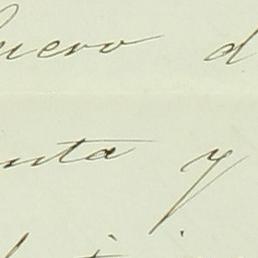 uero d
nta y